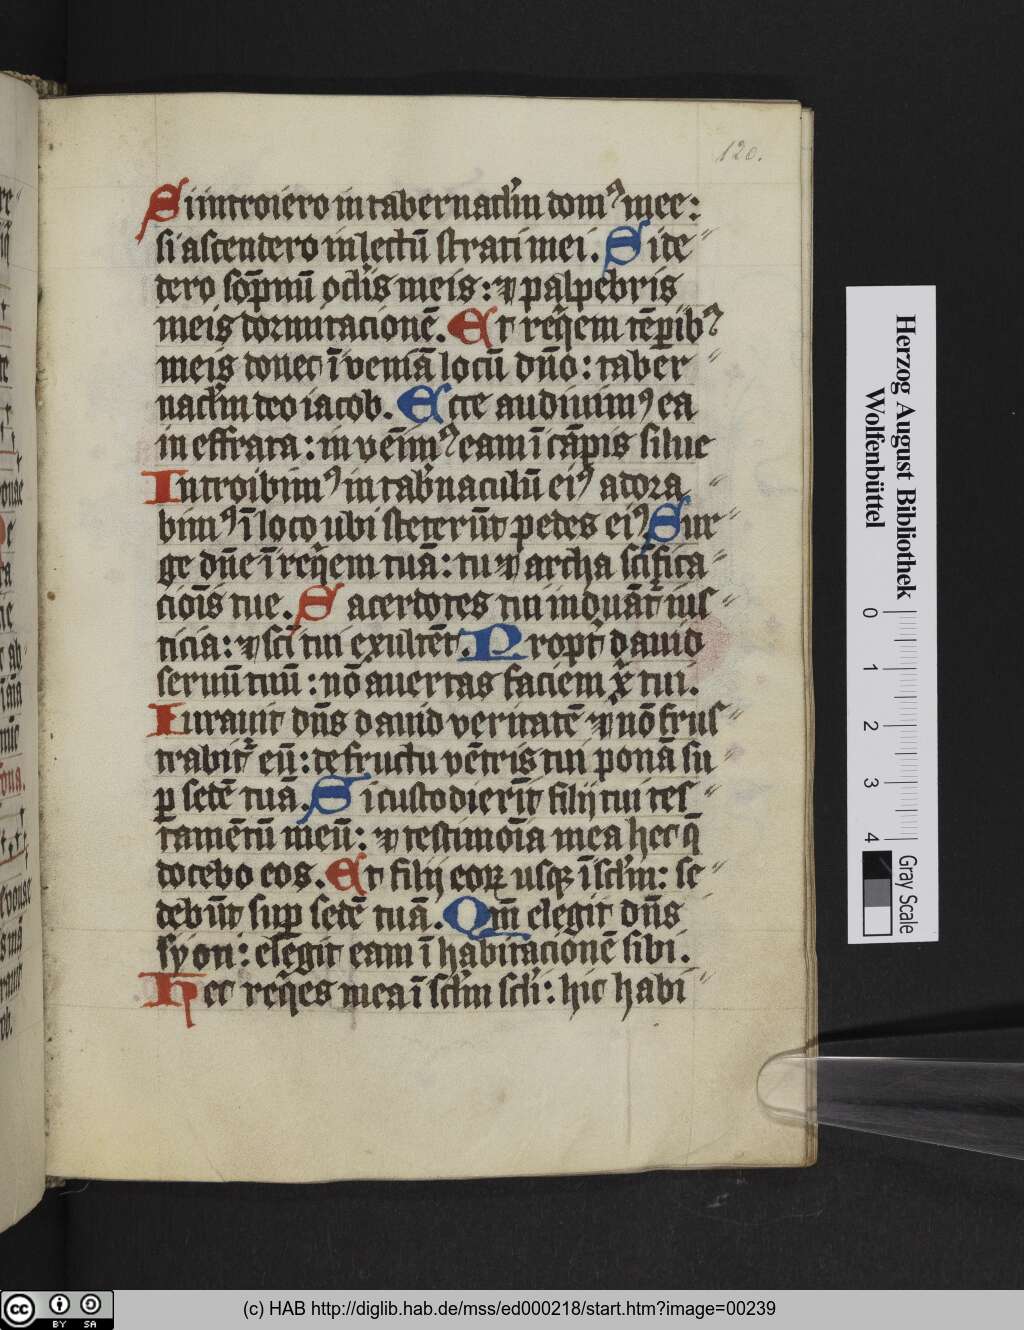 120.
Si introiero in tabernacl'm domꝰ mee:
si ascendero in lectū strati mei. Si de⸗
dero sōpnū oc̄lis meis: ⁊ palpebris
meis dormitacionē. Et req̄iem tēp̄ibꝰ
meis donec īveniā locū dn̄o: taber⸗
nacl'm deo iacob. Ecce audiuimꝰ ea
in effrata: invēimꝰ eam ī cāpis silue
Introibimꝰ in tab'naculū eiꝰ adora⸗
bimꝰ ī loco ubi steterūt pedes eiꝰ Sur⸗
ge dn̄e ī req̄iem tuā: tu ⁊ archa sc̄ifica⸗
ciōis tue. Sacerdotes tui induāt᷑ ius⸗
ticia: ⁊ sc̄i tui exultēt. Propt' david
seruū tuū: nō auertas faciem xp̄i tui.
Iurauit dn̄s david veritatē ⁊ nō frus⸗
trabit᷑ eū: de fructu vētris tui ponā su
p sedē tuā. Si custodierīt filij tui tes⸗
tamētū meū: ⁊ testimōia mea hec q̄
docebo eos. Et filij eoꝝ usqꝫ ī sc̄l'm: se⸗
debūt sup sedē tuā. Qm̄ elegit dn̄s
syon: elegit eam ī habitacionē sibi.
Hec req̄es mea ī sc̄l'm sc̄l'i: hic habi⸗
Herzog August Bibliothek
Wolfenbüttel
0 1 2 3 4
Gray Scale
cc BY SA
(c) HAB http://diglib.hab.de/mss/ed000218/start.htm?image=00239